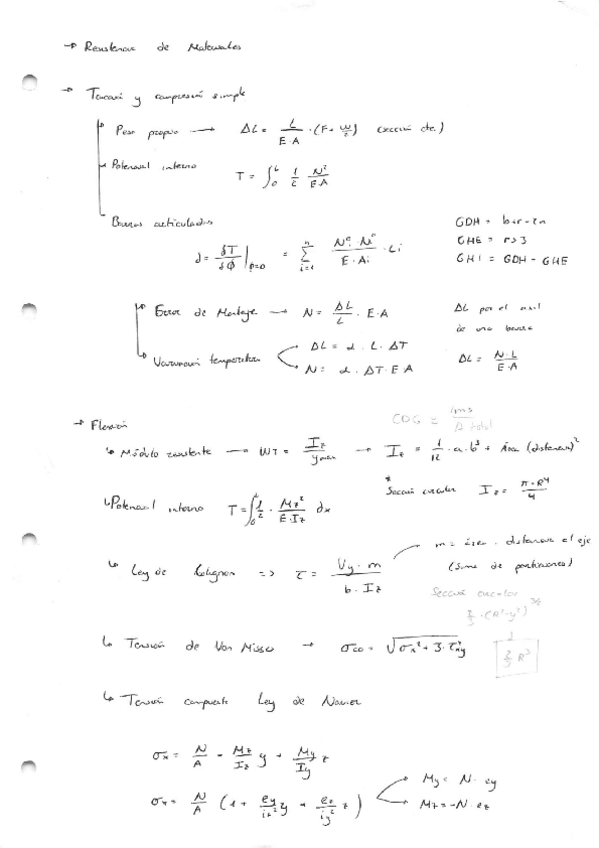 → Resistencia de Materiales
→ Tracción y compresión simple
Peso propio → ΔL = L / E·A · (F + W/2) (sección cte.)
Potencial interno T = ∫₀ᴸ 1/2 N²/E·A
Barras articuladas GDH = b+r-2n
d = δT/δΦ |Φ=0 = Σ i=1 n Nᵢ⁰·Nᵢ¹ / E·Aᵢ · Lᵢ GHE = r-3
GHI = GDH - GHE
Error de Montaje → N = ΔL/L · E·A ΔL por el axil
de una barra
Variación temperatura ΔL = α · L · ΔT ΔL = N·L / E·A
N = α · ΔT · E·A
→ Flexión CDG = / A total
↳ Módulo resistente → WT = Iz / ymax → Iz = 1/12 · a·b³ + Área (distancia)²
* Sección circular Iz = π·R⁴ / 4
↳ Potencial interno T = ∫₀ᴸ 1/2 · Mz² / E·Iz dx
m = área · distancia al eje
↳ Ley de Colignon => τ = Vy·m / b·Iz (Suma de particiones)
Sección circular
2/3 · (R²-y²)^3/2
↳ Tensión de Von Misses → σco = √σx² + 3·τxy² 2/3 R³
↳ Tensión compuesta Ley de Navier
σx = N/A - Mz/Iz y + My/Iy z
σx = N/A (1 + ey/iz² y + ez/iy² z) My = N·ey
Mz = -N·ez